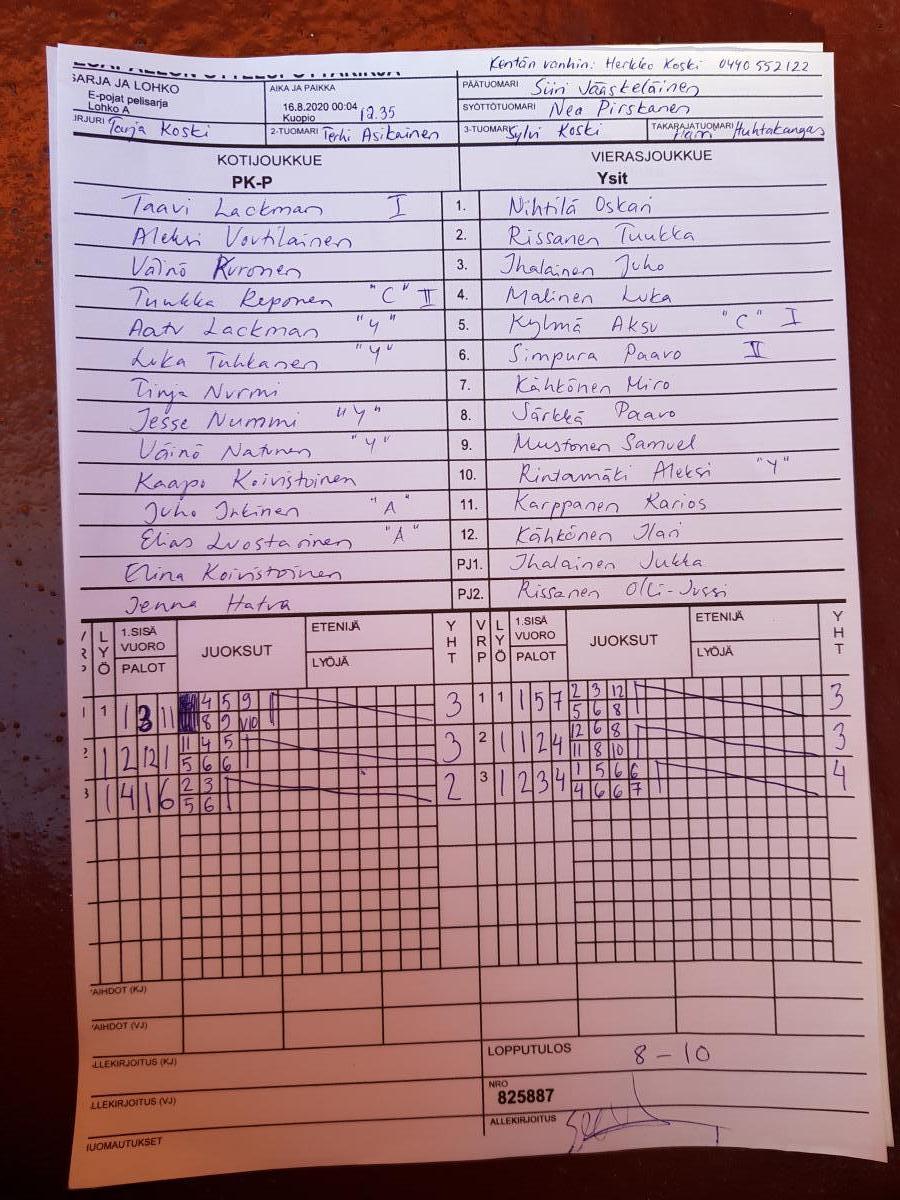 Kentän vanhin: Herkko Koski 0440 552122
SARJA JA LOHKO
E-pojat pelisarja
Lohko A
AIKA JA PAIKKA
16.8.2020 00:04 12.35
Kuopio
PÄÄTUOMARI Siiri Jääskeläinen
SYÖTTÖTUOMARI Nea Pirskanen
Tarja Koski
2-TUOMARI Terhi Asikainen
3-TUOMARI Sylvi Koski
TAKARAJATUOMARI Harri Huhtakangas
KOTIJOUKKUE VIERASJOUKKUE
PK-P Ysit
Taavi Lackman I 1. Nihtilä Oskari
Aleksi Voutilainen 2. Rissanen Tuukka
Väinö Kuronen 3. Ihalainen Juho
Tuukka Reponen "C" II 4. Malinen Luka
Aatu Lackman "Y" 5. Kylmä Aksu "C" I
Luka Tuhkanen "Y" 6. Simpura Paavo II
Tinja Nurmi 7. Kähkönen Miro
Jesse Nummi "Y" 8. Särkkä Paavo
Väinö Natunen "Y" 9. Mustonen Samuel
Kaapo Koivistoinen 10. Rintamäki Aleksi "Y"
Juho Inkinen "A" 11. Karppanen Karios
Elias Luostarinen "A" 12. Kähkönen Ilari
Elina Koivistoinen PJ1. Ihalainen Jukka
Jenna Hatva PJ2. Rissanen Olli-Jussi
LYÖ 1.SISÄ VUORO PALOT JUOKSUT ETENIJÄ LYÖJÄ YHT VRP LYÖ 1.SISÄ VUORO PALOT JUOKSUT ETENIJÄ LYÖJÄ YHT
1 1 1 3 11 4 5 9 3 1 1 1 5 7 2 3 12 3
8 9 10 5 6 8
2 1 2 12 1 11 4 5 3 2 1 1 2 4 12 6 8 3
5 6 6 11 8 10
3 1 4 1 6 2 3 2 3 1 2 3 4 1 5 6 6 4
5 6 4 6 6 7
VAIHDOT (KJ)
VAIHDOT (VJ)
ALLEKIRJOITUS (KJ)
LOPPUTULOS 8 - 10
ALLEKIRJOITUS (VJ)
NRO
825887
ALLEKIRJOITUS
HUOMAUTUKSET